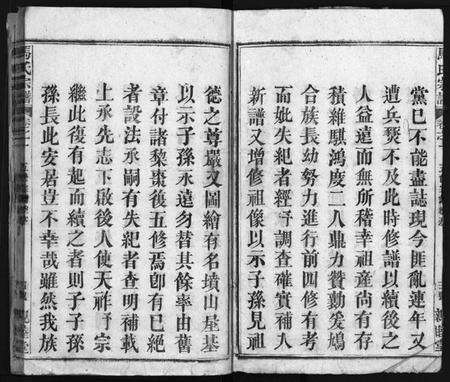 黨已不能盡誌現今匪亂連年又
遭兵燹不及此時修譜以續後之
人益遠而無所稽幸祖產尚有存
積雜騏鴻慶二人鼎力贊勷爰鳩
合族長幼努力進行前四修有考
而妣失紀者經予調查確實補入
新譜又增修祖像以示子孫見祖
德之尊嚴又圖繪有名墳山塋基
以示子孫永遠勿替其餘率由舊
章付諸黎棗後五修焉卽有已缺
者設法承嗣有失紀者查明補載
上承先志下啟後人使天祚予宗
繼此復有起而續之者則子子孫
孫長此安居豈不幸哉雖然我族
馬氏宗譜